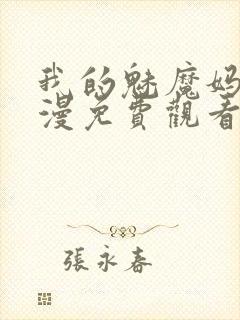 我的魅魔妈
漫免費觀看
張永春